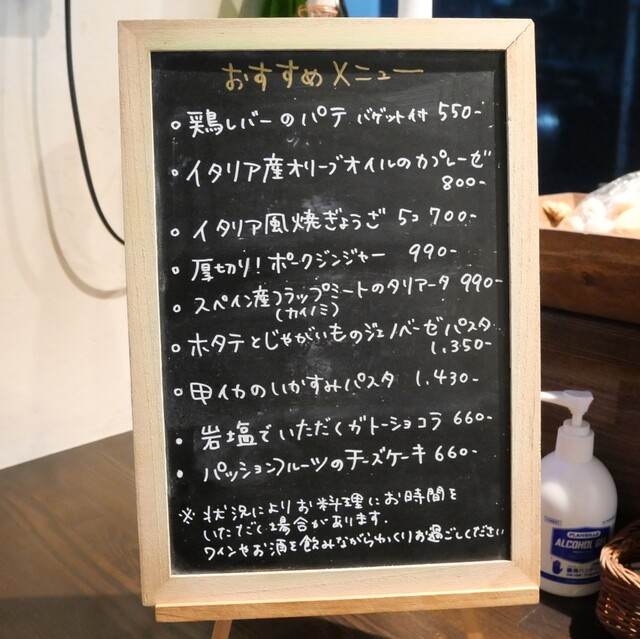 おすすめメニュー
• 鶏レバーのパテ バゲット付 550-
• イタリア産オリーブオイルのカプレーゼ
800-
• イタリア風焼ぎょうざ 5コ 700-
• 厚切り!ポークジンジャー 990-
• スペイン産フラップミートのタリアータ 990-
(カイノミ)
• ホタテとじゃがいものジェノベーゼパスタ
1,350-
• 甲イカのいかすみパスタ 1,430-
• 岩塩でいただくガトーショコラ 660-
• パッションフルーツのチーズケーキ 660-
※ 状況によりお料理にお時間を
いただく場合があります.
ワインやお酒を飲みながらゆっくりお過ごしください
ALCOHOL